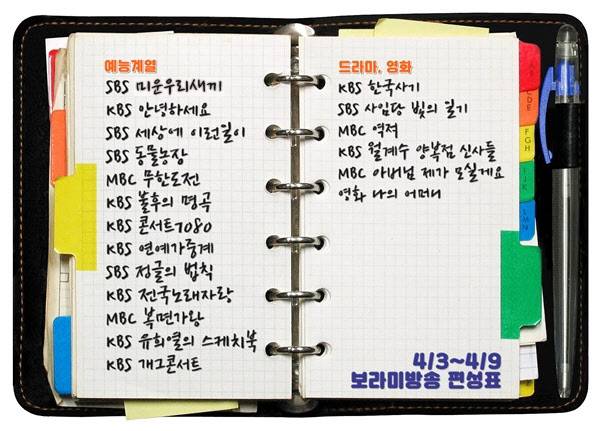 예능계열
SBS 미운우리새끼
KBS 안녕하세요
SBS 세상에 이런일이
SBS 동물농장
MBC 무한도전
KBS 불후의 명곡
KBS 콘서트7080
KBS 연예가중계
SBS 정글의 법칙
KBS 전국노래자랑
MBC 복면가왕
KBS 유희열의 스케치북
KBS 개그콘서트
드라마, 영화
KBS 한국사기
SBS 사임당 빛의 일기
MBC 역적
KBS 월계수 양복점 신사들
MBC 아버님 제가 모실게요
영화 나의 어머니
4/3~4/9
보라미방송 편성표
CDE
FGH
IJK
LMN